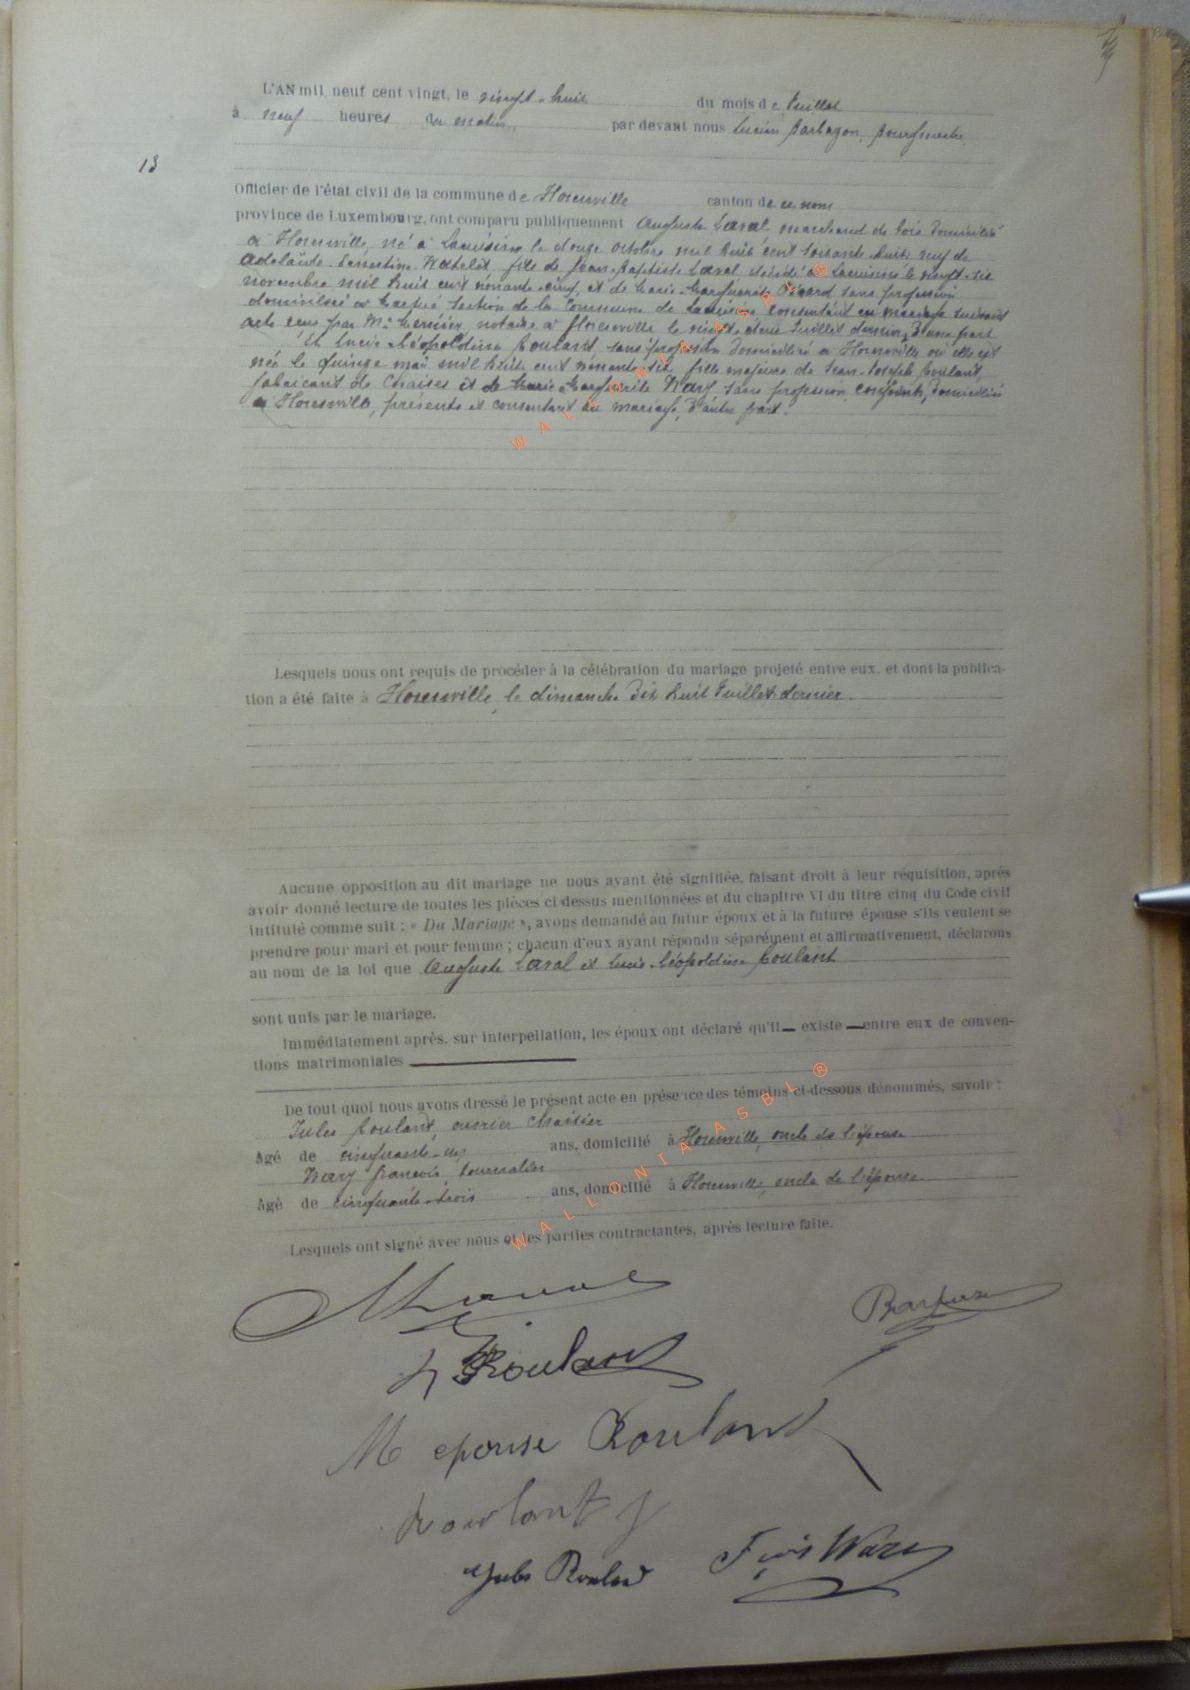 L'AN mil neuf cent vingt, le vingt-huit du mois de Juillet
à neuf heures du matin, par devant nous Lucien Barbazon, Bourgmestre,
13
Officier de l'état civil de la commune de Florenville canton de ce nom
province de Luxembourg, ont comparu publiquement Auguste Laval marchand de bois domicilié
à Florenville, né à Lacuisine le douze octobre mil huit cent soixante huit, veuf de
Adelaïde Ernestine Watelet, fils de Jean-Baptiste Laval, décédé à Lacuisine le vingt-six
novembre mil huit cent nonante-cinq, et de Marie-Marguerite Picard sans profession
domiciliée à section de la Commune de Lacuisine consentant au mariage suivant
acte reçu par Mr notaire à Florenville le vingt deux Juillet dernier, d'une part
Et Lucie Léopoldine Roulant sans profession domiciliée à Florenville où elle est
née le quinze mai mil huit cent nonante-six, fille majeure de Jean-Joseph Roulant,
fabricant de chaises et de Marie-Marguerite Wary, sans profession, conjoints, domiciliés
à Florenville, présents et consentant au mariage, d'autre part.
WALLONIA ASBL ®
Lesquels nous ont requis de procéder à la célébration du mariage projeté entre eux, et dont la publica-
tion a été faite à Florenville, le dimanche dix huit Juillet dernier.
Aucune opposition au dit mariage ne nous ayant été signifiée, faisant droit à leur réquisition, après
avoir donné lecture de toutes les pièces ci-dessus mentionnées et du chapitre VI du titre cinq du Code civil
intitulé comme suit : « Du Mariage », avons demandé au futur époux et à la future épouse s'ils veulent se
prendre pour mari et pour femme ; chacun d'eux ayant répondu séparément et affirmativement, déclarons
au nom de la loi que Auguste Laval et Lucie Léopoldine Roulant
sont unis par le mariage.
Immédiatement après, sur interpellation, les époux ont déclaré qu'il — existe — entre eux de conven-
tions matrimoniales
De tout quoi nous avons dressé le présent acte en présence des témoins ci-dessous dénommés, savoir :
Jules Roulant, ouvrier chaisier
âgé de cinquante-un ans, domicilié à Florenville, oncle de l'épouse
Wary François, Journalier
âgé de cinquante-trois ans, domicilié à Florenville, oncle de l'épouse
WALLONIA ASBL ®
Lesquels ont signé avec nous et les parties contractantes, après lecture faite.
Laval
L Roulant
M epouse Roulant
Roulant J
Jules Roulant
Fçois Wary